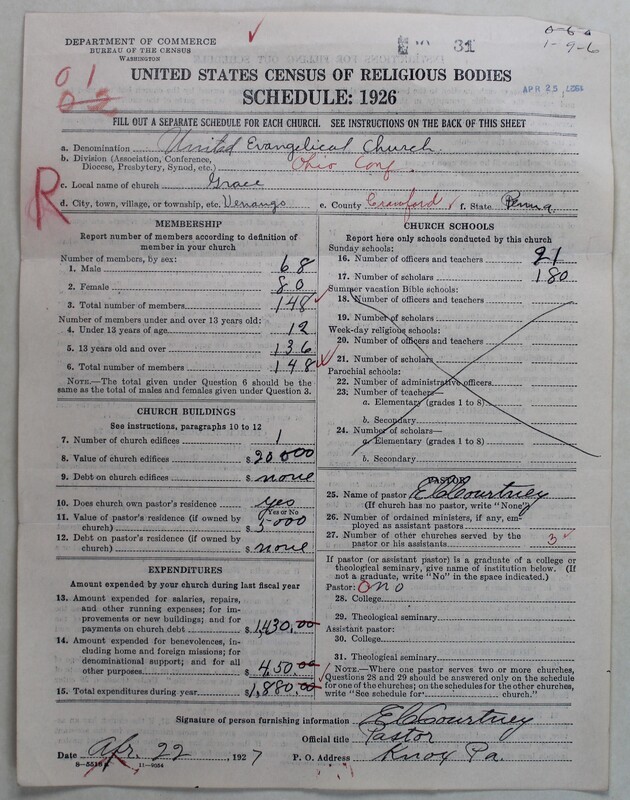 DEPARTMENT OF COMMERCE
BUREAU OF THE CENSUS
WASHINGTON
31
1-9-6
01
02
APR 25
UNITED STATES CENSUS OF RELIGIOUS BODIES
SCHEDULE: 1926
FILL OUT A SEPARATE SCHEDULE FOR EACH CHURCH. SEE INSTRUCTIONS ON THE BACK OF THIS SHEET
a. Denomination United Evangelical Church
b. Division (Association, Conference, Diocese, Presbytery, Synod, etc.) Ohio Conf.
R
c. Local name of church Grace
d. City, town, village, or township, etc. Venango e. County Crawford f. State Penna
MEMBERSHIP
Report number of members according to definition of
member in your church
Number of members, by sex:
1. Male 68
2. Female 80
3. Total number of members 148
Number of members under and over 13 years old:
4. Under 13 years of age 12
5. 13 years old and over 136
6. Total number of members 148
NOTE.—The total given under Question 6 should be the
same as the total of males and females given under Question 3.
CHURCH BUILDINGS
See instructions, paragraphs 10 to 12
7. Number of church edifices 1
8. Value of church edifices $ 20,000
9. Debt on church edifices $ none
10. Does church own pastor's residence yes
(Yes or No)
11. Value of pastor's residence (if owned by
church) $
12. Debt on pastor's residence (if owned by
church) $ none
EXPENDITURES
Amount expended by your church during last fiscal year
13. Amount expended for salaries, repairs,
and other running expenses; for im-
provements or new buildings; and for
payments on church debt $ 1,430.00
14. Amount expended for benevolences, in-
cluding home and foreign missions; for
denominational support; and for all
other purposes $ 450.00
15. Total expenditures during year $ 1,880.00
CHURCH SCHOOLS
Report here only schools conducted by this church
Sunday schools:
16. Number of officers and teachers 21
17. Number of scholars 180
Summer vacation Bible schools:
18. Number of officers and teachers
19. Number of scholars
Week-day religious schools:
20. Number of officers and teachers
21. Number of scholars
Parochial schools:
22. Number of administrative officers
23. Number of teachers—
a. Elementary (grades 1 to 8)
b. Secondary
24. Number of scholars—
a. Elementary (grades 1 to 8)
b. Secondary
PASTOR
25. Name of pastor E C Courtney
(If church has no pastor, write "None")
26. Number of ordained ministers, if any, em-
ployed as assistant pastors
27. Number of other churches served by the
pastor or his assistants 3
If pastor (or assistant pastor) is a graduate of a college or
theological seminary, give name of institution below. (If
not a graduate, write "No" in the space indicated.)
Pastor: no
28. College
29. Theological seminary
Assistant pastor:
30. College
31. Theological seminary
NOTE.—Where one pastor serves two or more churches,
Questions 28 and 29 should be answered only on the schedule
for one of the churches; on the schedules for the other churches,
write "See schedule for church."
Signature of person furnishing information E C Courtney
Official title Pastor
Date Apr. 22, 1927 P. O. Address Knox Pa.
11—9054